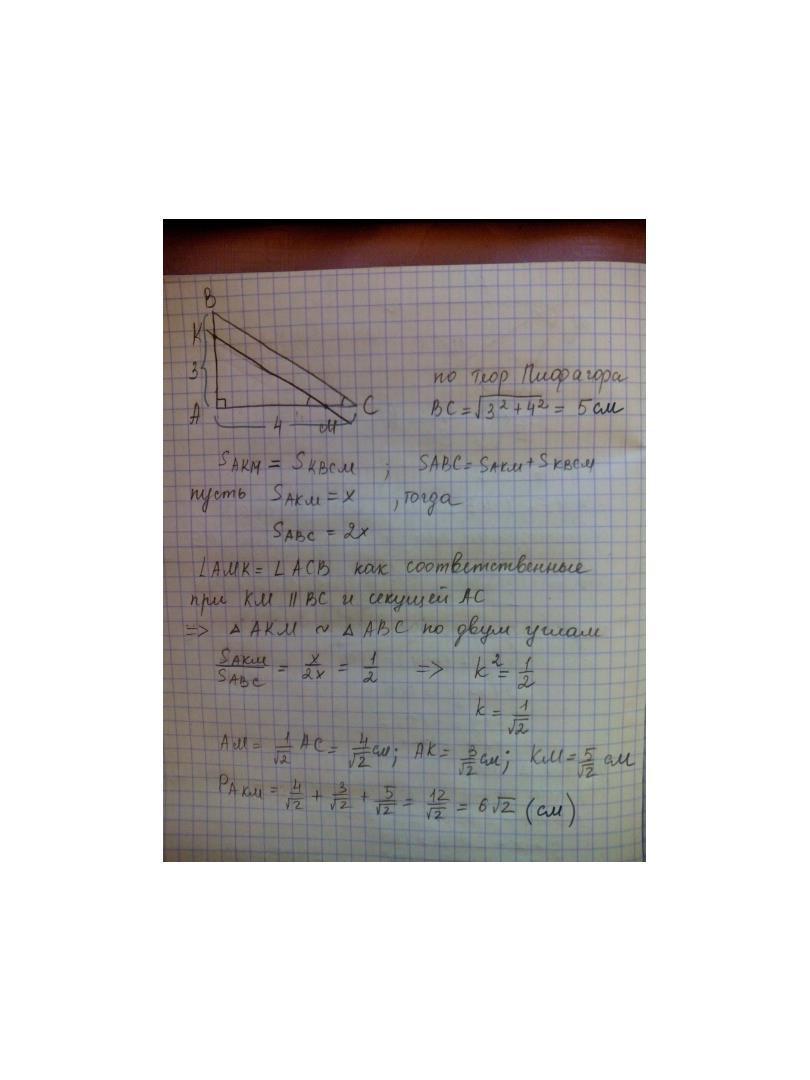 B
K
3
A
C
4
M
по теор Пифагора
BC = √(3² + 4²) = 5 см
S_AKM = S_KBCM ; S_ABC = S_AKM + S_KBCM
пусть S_AKM = x , тогда
S_ABC = 2x
∠AMK = ∠ACB как соответственные
при KM || BC и секущей AC
=> △ AKM ~ △ ABC по двум углам
S_AKM/S_ABC = x/2x = 1/2 => k² = 1/2
k = 1/√2
AM = 1/√2 AC = 4/√2 см; AK = 3/√2 см; KM = 5/√2 см
P_AKM = 4/√2 + 3/√2 + 5/√2 = 12/√2 = 6√2 (см)